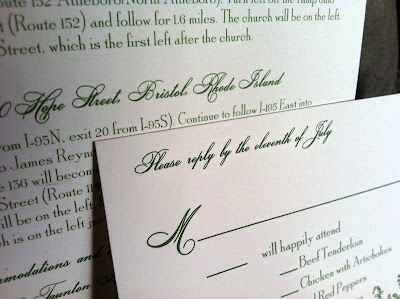 Route 152 Attleboro/North Attleboro). Turn left off the ramp onto
t (Route 152) and follow for 1.6 miles. The church will be on the left
Street, which is the first left after the church.
0 Hope Street, Bristol, Rhode Island
rom I-95N, exit 20 from I-95S). Continue to follow I-195 East into
to James Reyno
e 136 will becom
Street (Route 11
will be on the left
h is on the left j
mmodations and
Taunton
Please reply by the eleventh of July
M
will happily attend
Beef Tenderloin
Chicken with Artichokes
Red Peppers